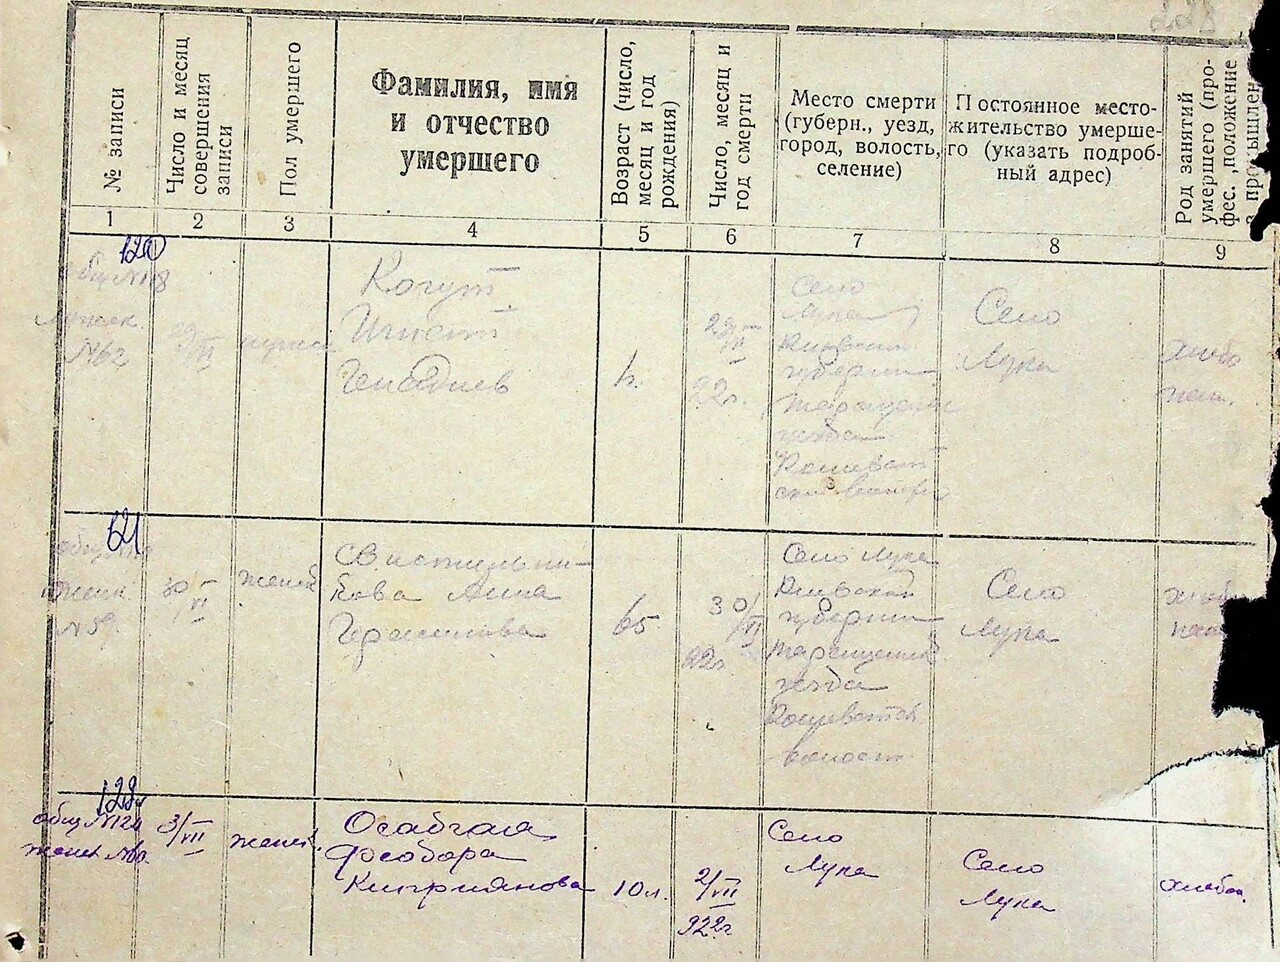 № записи
Число и месяц
совершения
записи
Пол умершего
Фамилия, имя
и отчество
умершего
Возраст (число,
месяц и год
рождения)
Число, месяц и
год смерти
Место смерти
(губерн., уезд,
город, волость,
селение)
Постоянное место-
жительство умерше-
го (указать подроб-
ный адрес)
Род занятий
умершего (про-
фес., положение
в промышлен
1 2 3 4 5 6 7 8 9
120
Когут
Игнат
Генадиев
29/VI
22г.
Село
Лука
Киевской
губернии
Таращанск
уезда
Село
Лука
хлебо
паш.
№62
121
30/VI
женск
Анна
Герасимова
65
30/VI
22г
Село Лука
Киевской
губернии
Таращанской
уезда
волост.
Село
Лука
№59
общ №121
женск №60
3/VII
женск.
Осабчая
Феодора
Киприянова
10 л.
2/VII
922г
Село
Лука
Село
Лука
хлебоп.